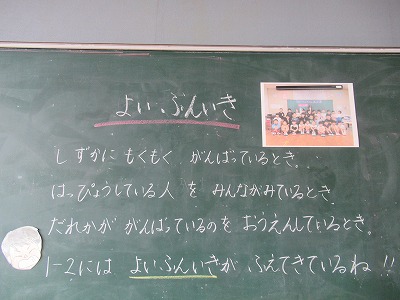 よいふんいき
しずかにもくもく がんばっているとき。
はっぴょうしている人 を みんながみているとき。
だれかが がんばっているのを おうえんしているとき。
1-2には よいふんいきが ふえてきているね!!